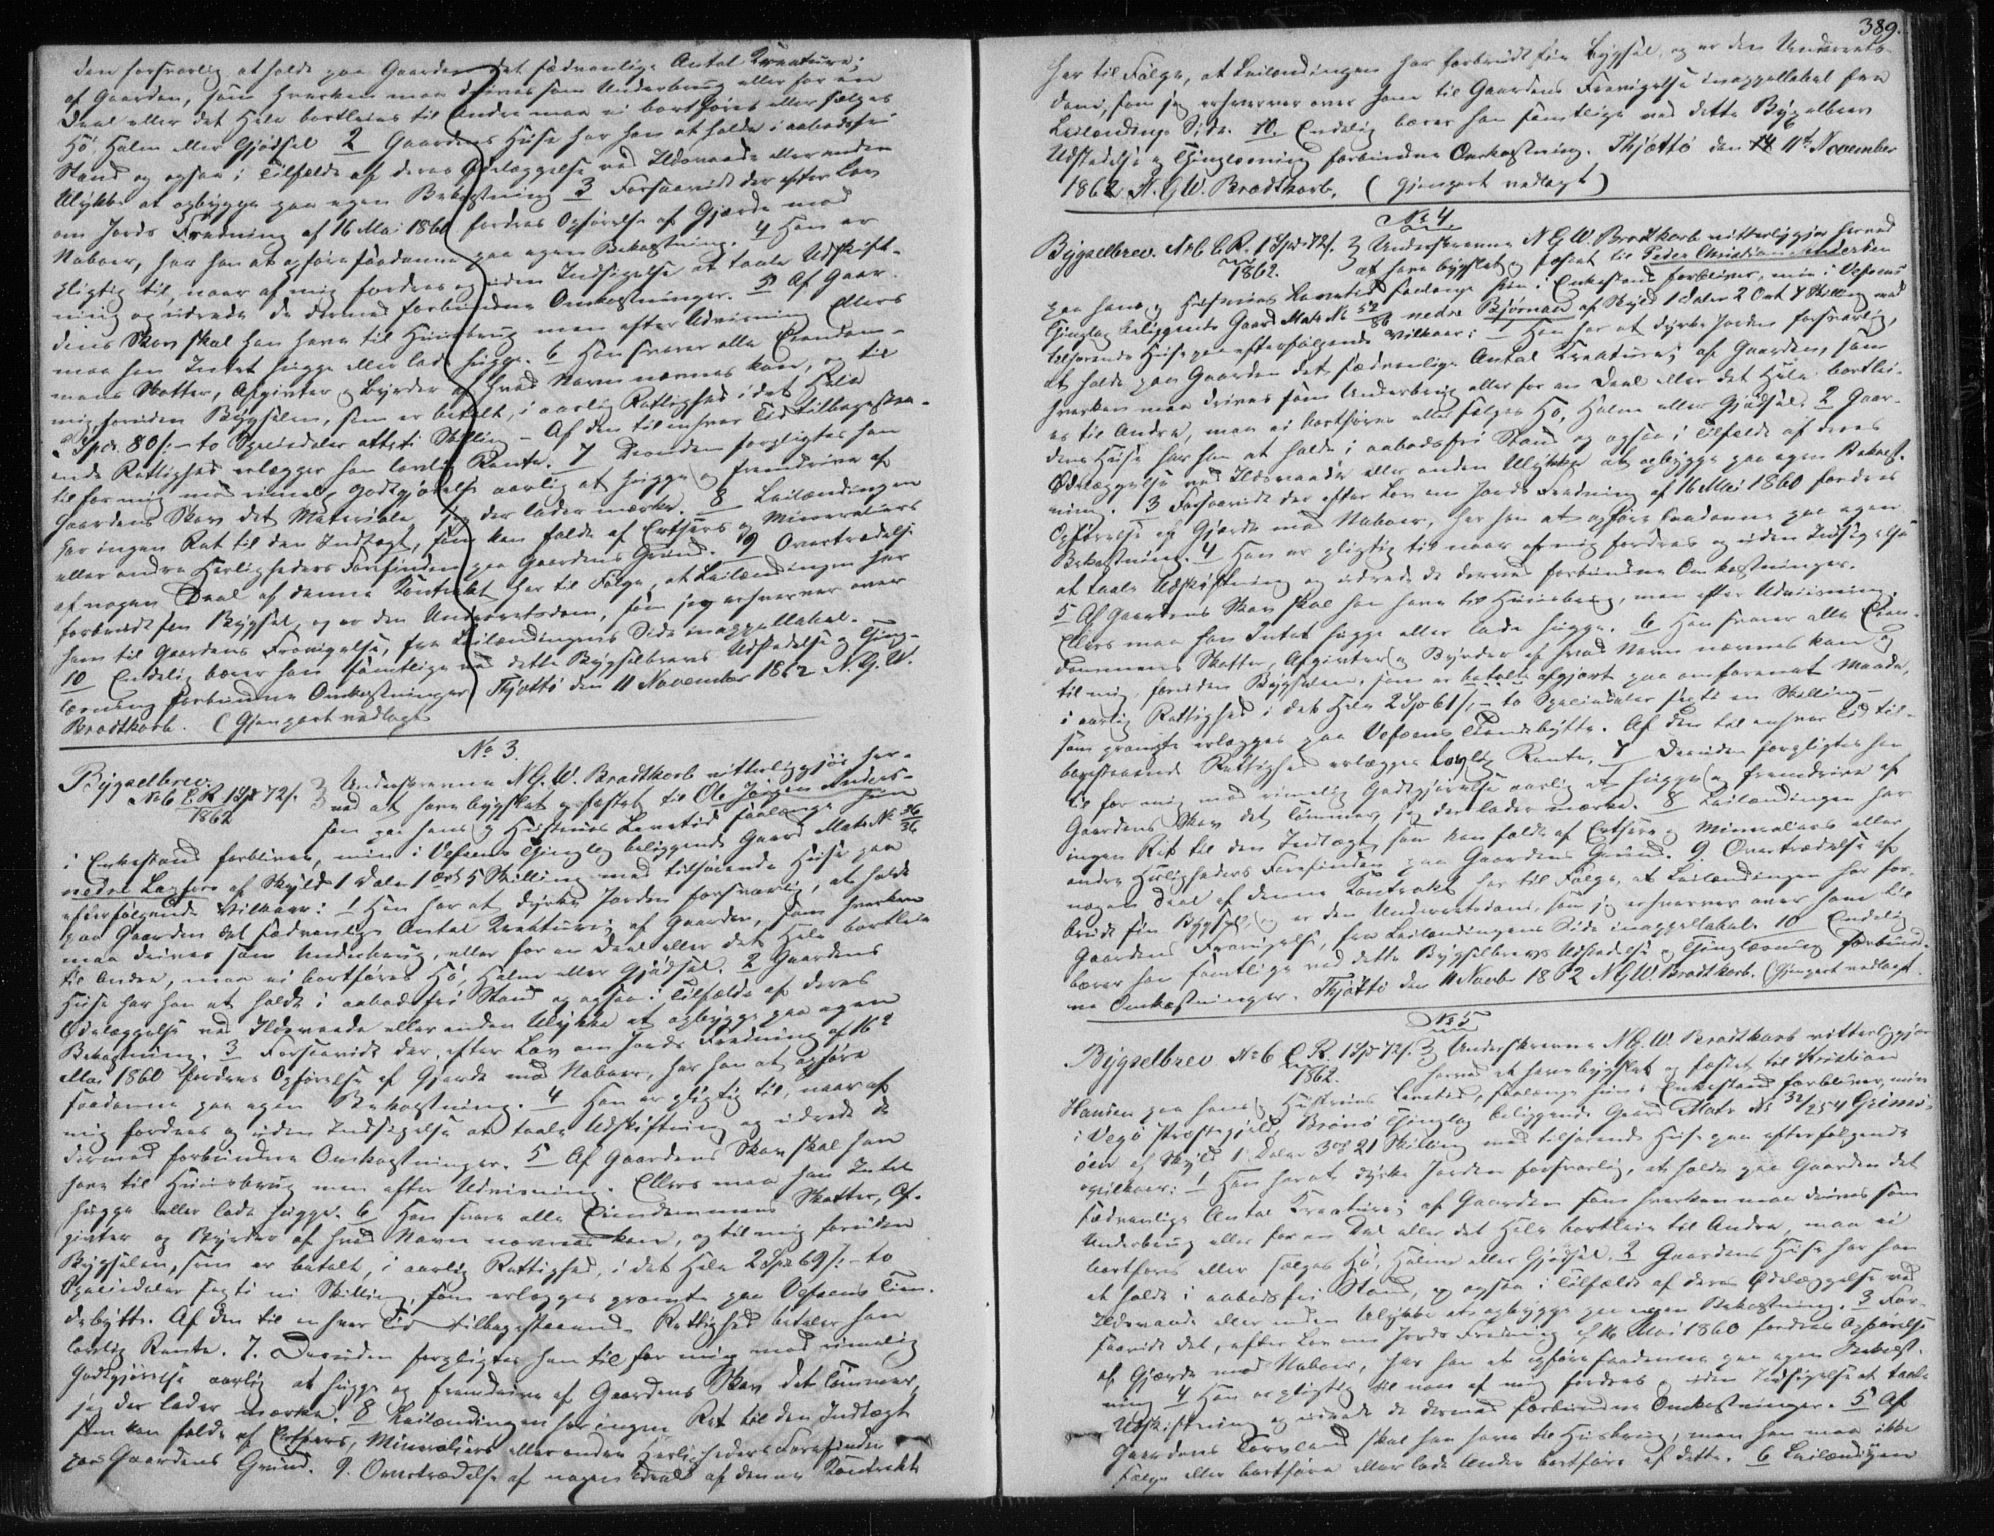 den forsvarlig, at holde paa Gaarden det sædvanlige Antal Kreature;
af Gaarden, som hverken maa drives som Underbrug eller for en
Deel eller det Hele bortleies til Andre maa ei bortføres eller sælges
Hø, Halm eller Gjødsel 2 Gaardens Huse har han at holde i aabodsfri
Stand og ogsaa i Tilfælde af deres Ødelæggelse ved Ildsvaade eller anden
Ulykke at opbygge paa egen Bekostning 3 Forsaavidt der efter Lov
om Jords Fredning af 16 Mai 1860 fordres Opførelse af Gjerde mod
Naboer, har han at opføre saadanne paa egen Bekostning. 4 Han er
pligtig til, naar af mig fordres og uden Indsigelse at taale Udskift-
ning og udrede de dermed forbundne Omkostninger. 5 Af Gaar-
dens Skov skal han have til Huusbrug men efter Udviisning Ellers
maa han Intet hugge eller lade hugge. 6 Han svarer alle Eiendom-
mens Skatter, Afgivter og Byrder af hvad Navn nævnes kan, og til
mig, foruden Bygselen, som er betalt, i aarlig Rettighed i det Hele
2 Spd. 80 s. – to Speciedaler otteti Skilling – Af den til enhver Tid tilbagestaa-
ende Rettighed erlægger han lovlig Rente. 7 Desuden forpligtes han
til for mig mod rimelig Godtgjørelse aarlig at hugge og fremdrive af
Gaardens Skov det Materiale, jeg der lader mærke. 8 Leilændingen
har ingen Ret til den Indtægt, som kan falde af Ertsers og Mineraliers
eller andre Herligheders Forefinden paa Gaardens Grund. 9 Overtrædelse
af nogen Deel af denne Kontrakt har til Følge, at Leilændingen har
forbrudt sin Bygsel, og er den Underretsdom, som jeg erhverver over
ham til Gaardens Fravigelse, fra Leilændingens Side inappellabel.
10 Endelig bærer han samtlige ved dette Bygselbrevs Udstedelse og Thing-
læsning forbundne Omkostninger Thjøttø den 11 November 1862 N. G. W.
Brodtkorb. (Gjenpart vedlagt
No 3.
Bygselbrev.
No 6 C. R. 1 Spd 72 s.
1862
Underskrevne N. G. W. Brodtkorb vitterliggjør her-
ved at have bygslet og fæstet til Ole Jørgen Anders-
sen paa hans og Hustrues Levetid saalænge hun
i Enkestand forbliver, min i Vefsens Thinglag beliggende Gaard Matr. No 36/36
nedre Laxfors af Skyld 1 Daler 1 Ort 5 Skilling med tilhørende Huse paa
efterfølgende Vilkaar: 1 Han har at dyrke Jorden forsvarlig, at holde
paa Gaarden det sædvanlige Antal Kreature; af Gaarden, som hverken
maa drives som Underbrug, eller for en Deel eller det Hele bortleies
til Andre, maa ei bortføres Hø, Halm eller Gjødsel. 2 Gaardens
Huse har han at holde i aabodsfri Stand og ogsaa i Tilfælde af deres
Ødelæggelse ved Ildsvaade eller anden Ulykke at opbygge paa egen
Bekostning. 3 Forsaavidt der, efter Lov om Jords Fredning af 16de
Mai 1860 fordres Opførelse af Gjerde mod Naboer, har han at opføre
saadanne paa egen Bekostning. 4 Han er pligtig til, naar af
mig fordres og uden Indsigelse at taale Udskiftning og udrede de
dermed forbundne Omkostninger. 5 Af Gaardens Skov skal han
have til Huusbrug men efter Udviisning. Ellers maa han Intet
hugge eller lade hugge. 6 Han svare alle Eiendommens Skatter, Af-
givter og Byrder af hvad Navn nævnes kan, og til mig foruden
Bygselen, som er betalt, i aarlig Rettighed, i det Hele 2 Spd 69 s. – to
Speciedaler sexti ni Skilling, som erlægges præcise paa Vefsens Tien-
debytte. Af den til enhver Tid tilbagestaaende Rettighed betaler han
lovlig Rente. 7. Desuden forpligtes han til for mig mod rimelig
Godtgjørelse aarlig at hugge og fremdrive af Gaardens Skov det Tømmer,
jeg der lader mærke. 8 Leilændingen har ingen Ret til den Indtægt
som kan falde af Ertsers, Mineraliers eller andre Herligheders Forefinden
paa Gaardens Grund. 9. Overtrædelse af nogen Deel af denne Kontrakt
389.
har til Følge, at Leilændingen har forbrudt sin Bygsel, og er den Underrets-
dom, som jeg erhverver over ham til Gaardens Fravigelse inappellabel fra
Leilændings Side. 10. Endelig bærer han samtlige ved dette Bygselbrevs
Udstedelse og Thinglæsning forbundne Omkostning. Thjøttø den 11te November
1862 N. G. W. Brodtkorb. (Gjenpart vedlagt)
No 4
Bygselbrev. No 6 C. R. 1 Spd 72 s.
1862.
Underskrevne N. G. W. Brodtkorb vitterliggjør herved
at have bygslet og fæstet til Peder Christian Andersen
paa hans og Hustrues Levetid saalænge hun i Enkestand forbliver, min i Vefsens
Thinglag beliggende Gaard Matr. No 52/86 nedre Bjørnaae af Skyld 1 Daler 2 Ort 7 Skilling med
tilhørende Huse paa efterfølgende Vilkaar: 1 Han har at dyrke Jorden forsvarlig,
at holde paa Gaarden det sædvanlige Antal Kreature; af Gaarden, som
hverken maa drives som Underbrug eller for en Deel eller det Hele bortlei-
es til Andre, maa ei bortføres eller sælges Hø, Halm eller Gjødsel. 2 Gaar-
dens Huse har han at holde i aabodsfri Stand og ogsaa i Tilfælde af deres
Ødelæggelse ved Ildsvaade eller anden Ulykke at opbygge paa egen Bekost-
ning. 3 Forsaavidt der efter Lov om Jords Fredning af 16 Mai 1860 fordres
Opførelse af Gjerde mod Naboer, har han at opføre saadanne paa egen
Bekostning. 4 Han er pligtig til naar af mig fordres og uden Indsigelse
at taale Udskiftning og udrede de dermed forbundne Omkostninger.
5 Af Gaardens Skov skal han have til Huusbrug, men efter Udviisning.
Ellers maa han Intet hugge eller lade hugge. 6 Han svarer alle Eien-
dommens Skatter, Afgivter og Byrder af hvad Navn nævnes kan og
til mig, foruden Bygselen, som er betalt afgjort paa omforenet Maade,
i aarlig Rettighed i det Hele 2 Spd 61 s. – to Speciedaler sexti en Skilling –
som præcise erlægges paa Vefsens Tiendebytte. Af den til enhver Tid til-
bagestaaende Rettighed erlægges lovlig Rente. 7 Desuden forpligtes han
til for mig mod rimelig Godtgjørelse aarlig at hugge og fremdrive af
Gaardens Skov det Tømmer, jeg der lader mærke. 8 Leilændingen har
ingen Ret til den Indtægt som kan falde af Ertsers og Mineraliers eller
andre Herligheders Forefinden paa Gaardens Grund. 9 Overtrædelse af
nogen Deel af denne Kontrakt har til Følge, at Leilændingen har for-
brudt sin Bygsel, og er den Underretsdom, som jeg erhverver over ham til
Gaardens Fravigelse, fra Leilændingens Side inappellabel. 10 Endelig
bærer han samtlige ved dette Bygselbrevs Udstedelse og Thinglæsning forbund-
ne Omkostninger. Thjøttø den 11 Novbr 1862 N. G. W. Brodtkorb. (Gjenpart vedlagt.
No 5
Bygselbrev No 6 C. R. 1 Spd 72 s.
1862.
Underskrevne N. G. W. Brodtkorb vitterliggjør
herved at have bygslet og fæstet til Kristian
Hansen paa hans og Hustrues Levetid, saalænge hun i Enkestand forbliver, min
i Vegø Præstegjeld, Brønø Thinglag beliggende Gaard Matr No 32/254 Grims-
øen af Skyld 1 Daler 3 Ort 21 Skilling med tilhørende Huse paa efterfølgende
Vilkaar: 1 Han har at dyrke Jorden forsvarlig, at holde paa Gaarden det
sædvanlige Antal Kreature; af Gaarden som hverken maa drives som
Underbrug eller for en Deel eller det Hele bortleies til Andre, maa ei
bortføres eller sælges Hø, Halm eller Gjødsel. 2 Gaardens Huse har han
at holde i aabodsfri Stand, og ogsaa i Tilfælde af deres Ødelæggelse ved
Ildsvaade eller anden Ulykke at opbygge paa egen Bekostning. 3 For-
saavidt det, efter Lov om Jords Fredning af 16 Mai 1860 fordres Opførelse
af Gjerde mod Naboer, har han at opføre saadanne paa egen Bekost-
ning 4 Han er pligtig til naar af mig fordres og uden Indsigelse at taale
Udskiftning og udrede de dermed forbundne Omkostninger. 5 Af
Gaardens Torvland skal han have til Husbrug, men han maa ikke
sælge eller bortføre eller lade Andre bortføre af dette. 6 Leilændingen